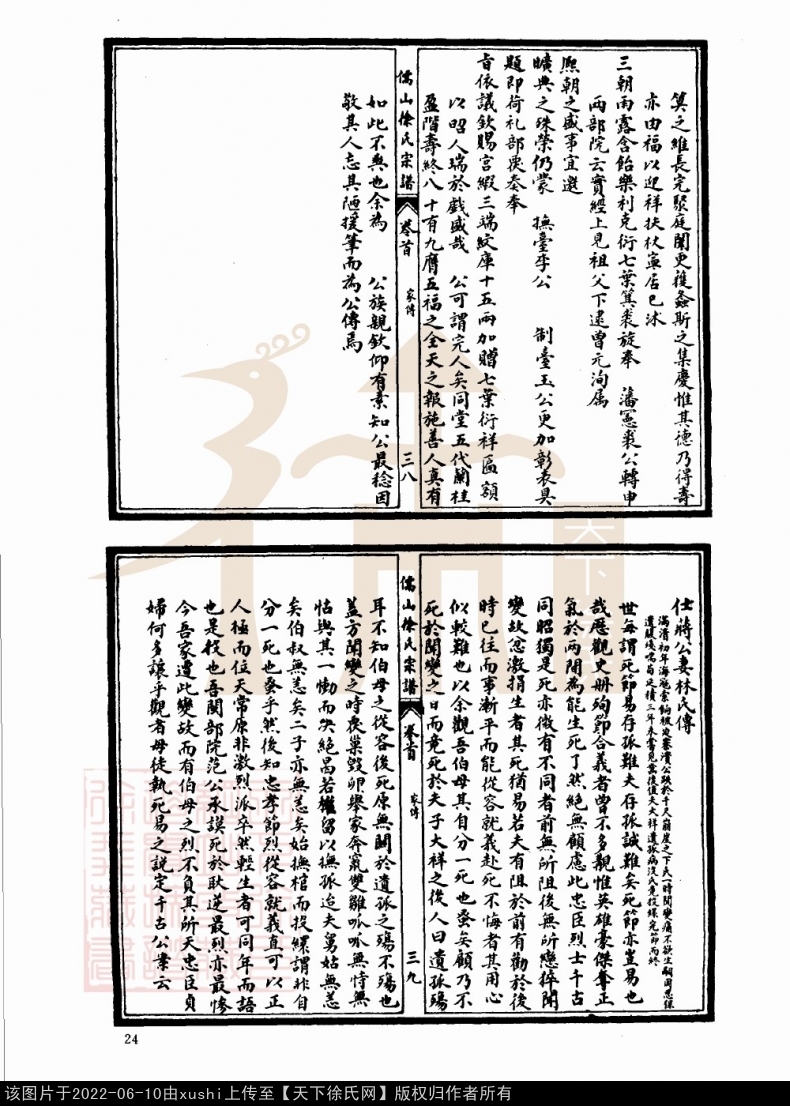 筭之維長完聚庭闈更穫螽斯之集慶惟其德乃得壽
亦由福以迎祥扶杖寧居已沐
三朝雨露含飴樂利克衍七葉箕裘旋奉　潘憲裘公轉申
兩部院云實經上見祖父下逮曾元洵属
熈朝之盛事宜選
曠典之殊榮仍蒙　撫臺李公　制臺玉公更加彰表具
題即荷礼部覆奏奉
㫖依議欽賜宫緞三端紋庫十五兩加贈七葉衍祥匾額
以昭人瑞於戲盛哉　公可謂完人矣同堂五代蘭桂
盈階壽終八十有九膺五福之全天之報施善人真有
如此不爽也余為　公族親欽仰有素知公最稔因
敬其人忘其陋援筆而為公傳焉
儒山徐氏宗譜
卷首
家傳
三八
仕蔣公妻林氏傳
滿清初年海寇索餉被迫寨潰公殁於千尺崩崖之下氏一時聞變痛不欲生嗣因思保
遺腹殘喘苟延積三年未嘗見齒後值夫大祥遺孤病沒氏竟投繯完節而終
世每謂死節易存孤難夫存孤誠難矣死節亦豈易也
哉歷觀史册殉節合義者曾不多覯惟英雄豪傑奪正
氣於兩間為能生死了然絕無顧慮此忠臣烈士千古
同昭獨是死亦微有不同者前無所阻後無所戀猝聞
變故忿激捐生者其死猶易若夫有阻於前有勸於後
時已往而事漸平而能從容就義赴死不悔者其用心
似較難也以余觀吾伯母其自分一死也蚤矣顧乃不
死於聞變之日而竟死於夫子大祥之後人曰遺孤殤
耳不知伯母之從容後死原無關於遺孤之殤不殤也
蓋方聞變之時喪巢毀卵舉家奔竄雙雛呱呱無恃無
怙與其一慟而失絕曷若權留以撫孤迨夫舅姑無恙
矣伯叔無恙矣二子亦無恙矣始撫棺而投繯謂非自
分一死也蚤乎然後知忠孝節烈從容就義直可以正
人極而位天常原非激烈派卒然輕生者可同年而語
也是役也吾閩部院范公承謨死於耿逆最烈亦最慘
今吾家遭此變故而有伯母之烈不負其所天忠臣貞
婦何多讓乎觀者毋徒執死易之說定千古公案云
儒山徐氏宗譜
卷首
家傳
三九
24
天下
该图片于2022-06-10由xushi上传至【天下徐氏网】版权归作者所有